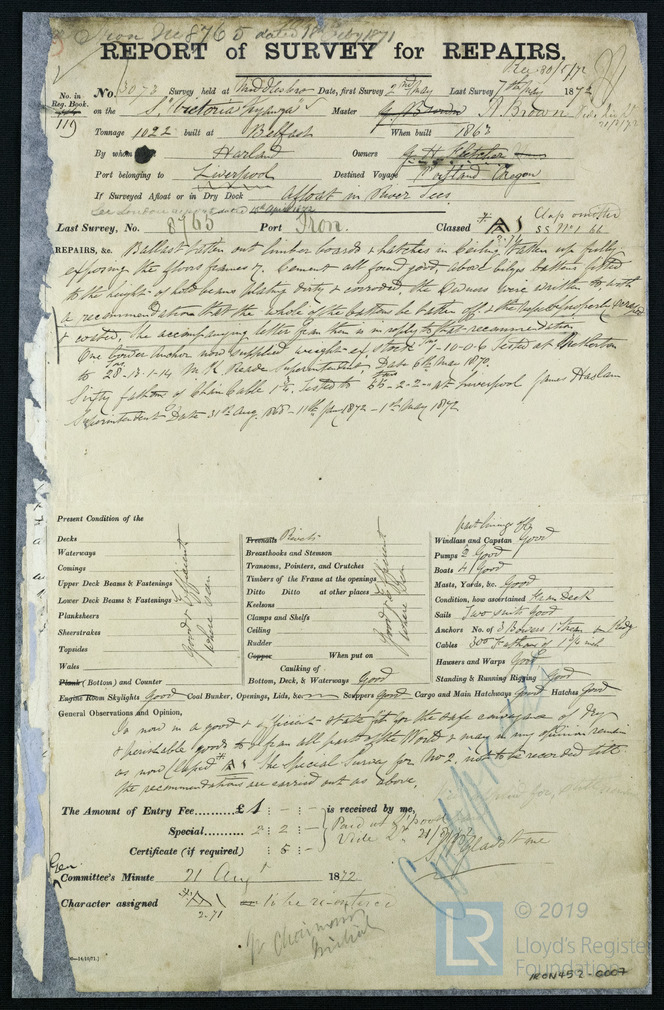 Iron No 8765 dated 18 Feby 1871
REPORT of SURVEY for REPAIRS.
Rec. 30/5/72
No. in Reg. Book.
119
No. 3073 Survey held at Middlesbro Date, first Survey 2nd May Last Survey 7th May 1872
on the S. "Victoria Nyanza" Master J. Brown D. Brown
Tonnage 1022 built at Belfast When built 1863
By whom Harland Owners J H Fletcher
Port belonging to Liverpool Destined Voyage Portland Oregon
If Surveyed Afloat or in Dry Dock Afloat in River Tees
See London report dated 10th April 1872
Last Survey, No. 8765 Port Iron. Classed A
SS No 1
REPAIRS, &c. Ballast taken out limber boards & hatches in Ceiling taken up fully
exposing the floors frames &. Cement all found good, above bilges battens fitted
to the height of hold beams plating dirty & corroded, the Owners were written to with
a recommendation that the whole of the battens be taken off & the surface properly
& coated, The accompanying letter from them is in reply to that recommendation.
One Bower Anchor now supplied weight ex stock 27-10-0-6 Tested at Netherton
to 28-13-1-14 M. K. Reade Superintendent Date 6th Mar 1870.
Sixty fathoms of Chain Cable Tested to 55-2-2 at Liverpool James Haslam
Superintendent Date 31st Aug. 1868 - 11th Jan 1872 - 1st May 1872
Present Condition of the
Decks
Waterways
Comings
Upper Deck Beams & Fastenings
Lower Deck Beams & Fastenings
Planksheers
Sheerstrakes
Topsides
Wales
Plank (Bottom) and Counter
Good & Efficient where seen
Treenails Rivets
Breasthooks and Stemson
Transoms, Pointers, and Crutches
Timbers of the Frame at the openings
Ditto Ditto at other places
Keelsons
Clamps and Shelfs
Ceiling
Rudder
Copper When put on
Caulking of
Bottom, Deck, & Waterways Good
Good & Efficient where seen
part linings off
Windlass and Capstan Good
Pumps 2 Good
Boats 4 Good
Masts, Yards, &c. Good
Condition, how ascertained From Deck
Sails Two suits good
Anchors No. of 3 Bowers 1 Stream
Cables 300 Fathoms of 1 3/4 inch
Hausers and Warps Good
Standing & Running Rigging Good
Engine Room Skylights Good Coal Bunker, Openings, Lids, &c. Scuppers Good Cargo and Main Hatchways Good Hatches Good
General Observations and Opinion,
Is now in a good & efficient state fit for the safe conveyance of dry
& perishable goods to & from all parts of the World & may in my opinion remain
as now Classed A The Special Survey for No 2, not to be recorded till
the recommendations are carried out as above.
The Amount of Entry Fee......... £ 1 : - : - is received by me,
Special ......... 2 : 2 : - Paid at L'pool
Certificate (if required) : 5 : -
Gladstone
Committee's Minute 21 Augt 1872
Character assigned A
2.71
J. Chairmans
Initial
© 2019
LR
Lloyd's Register
Foundation
IRON452-0007